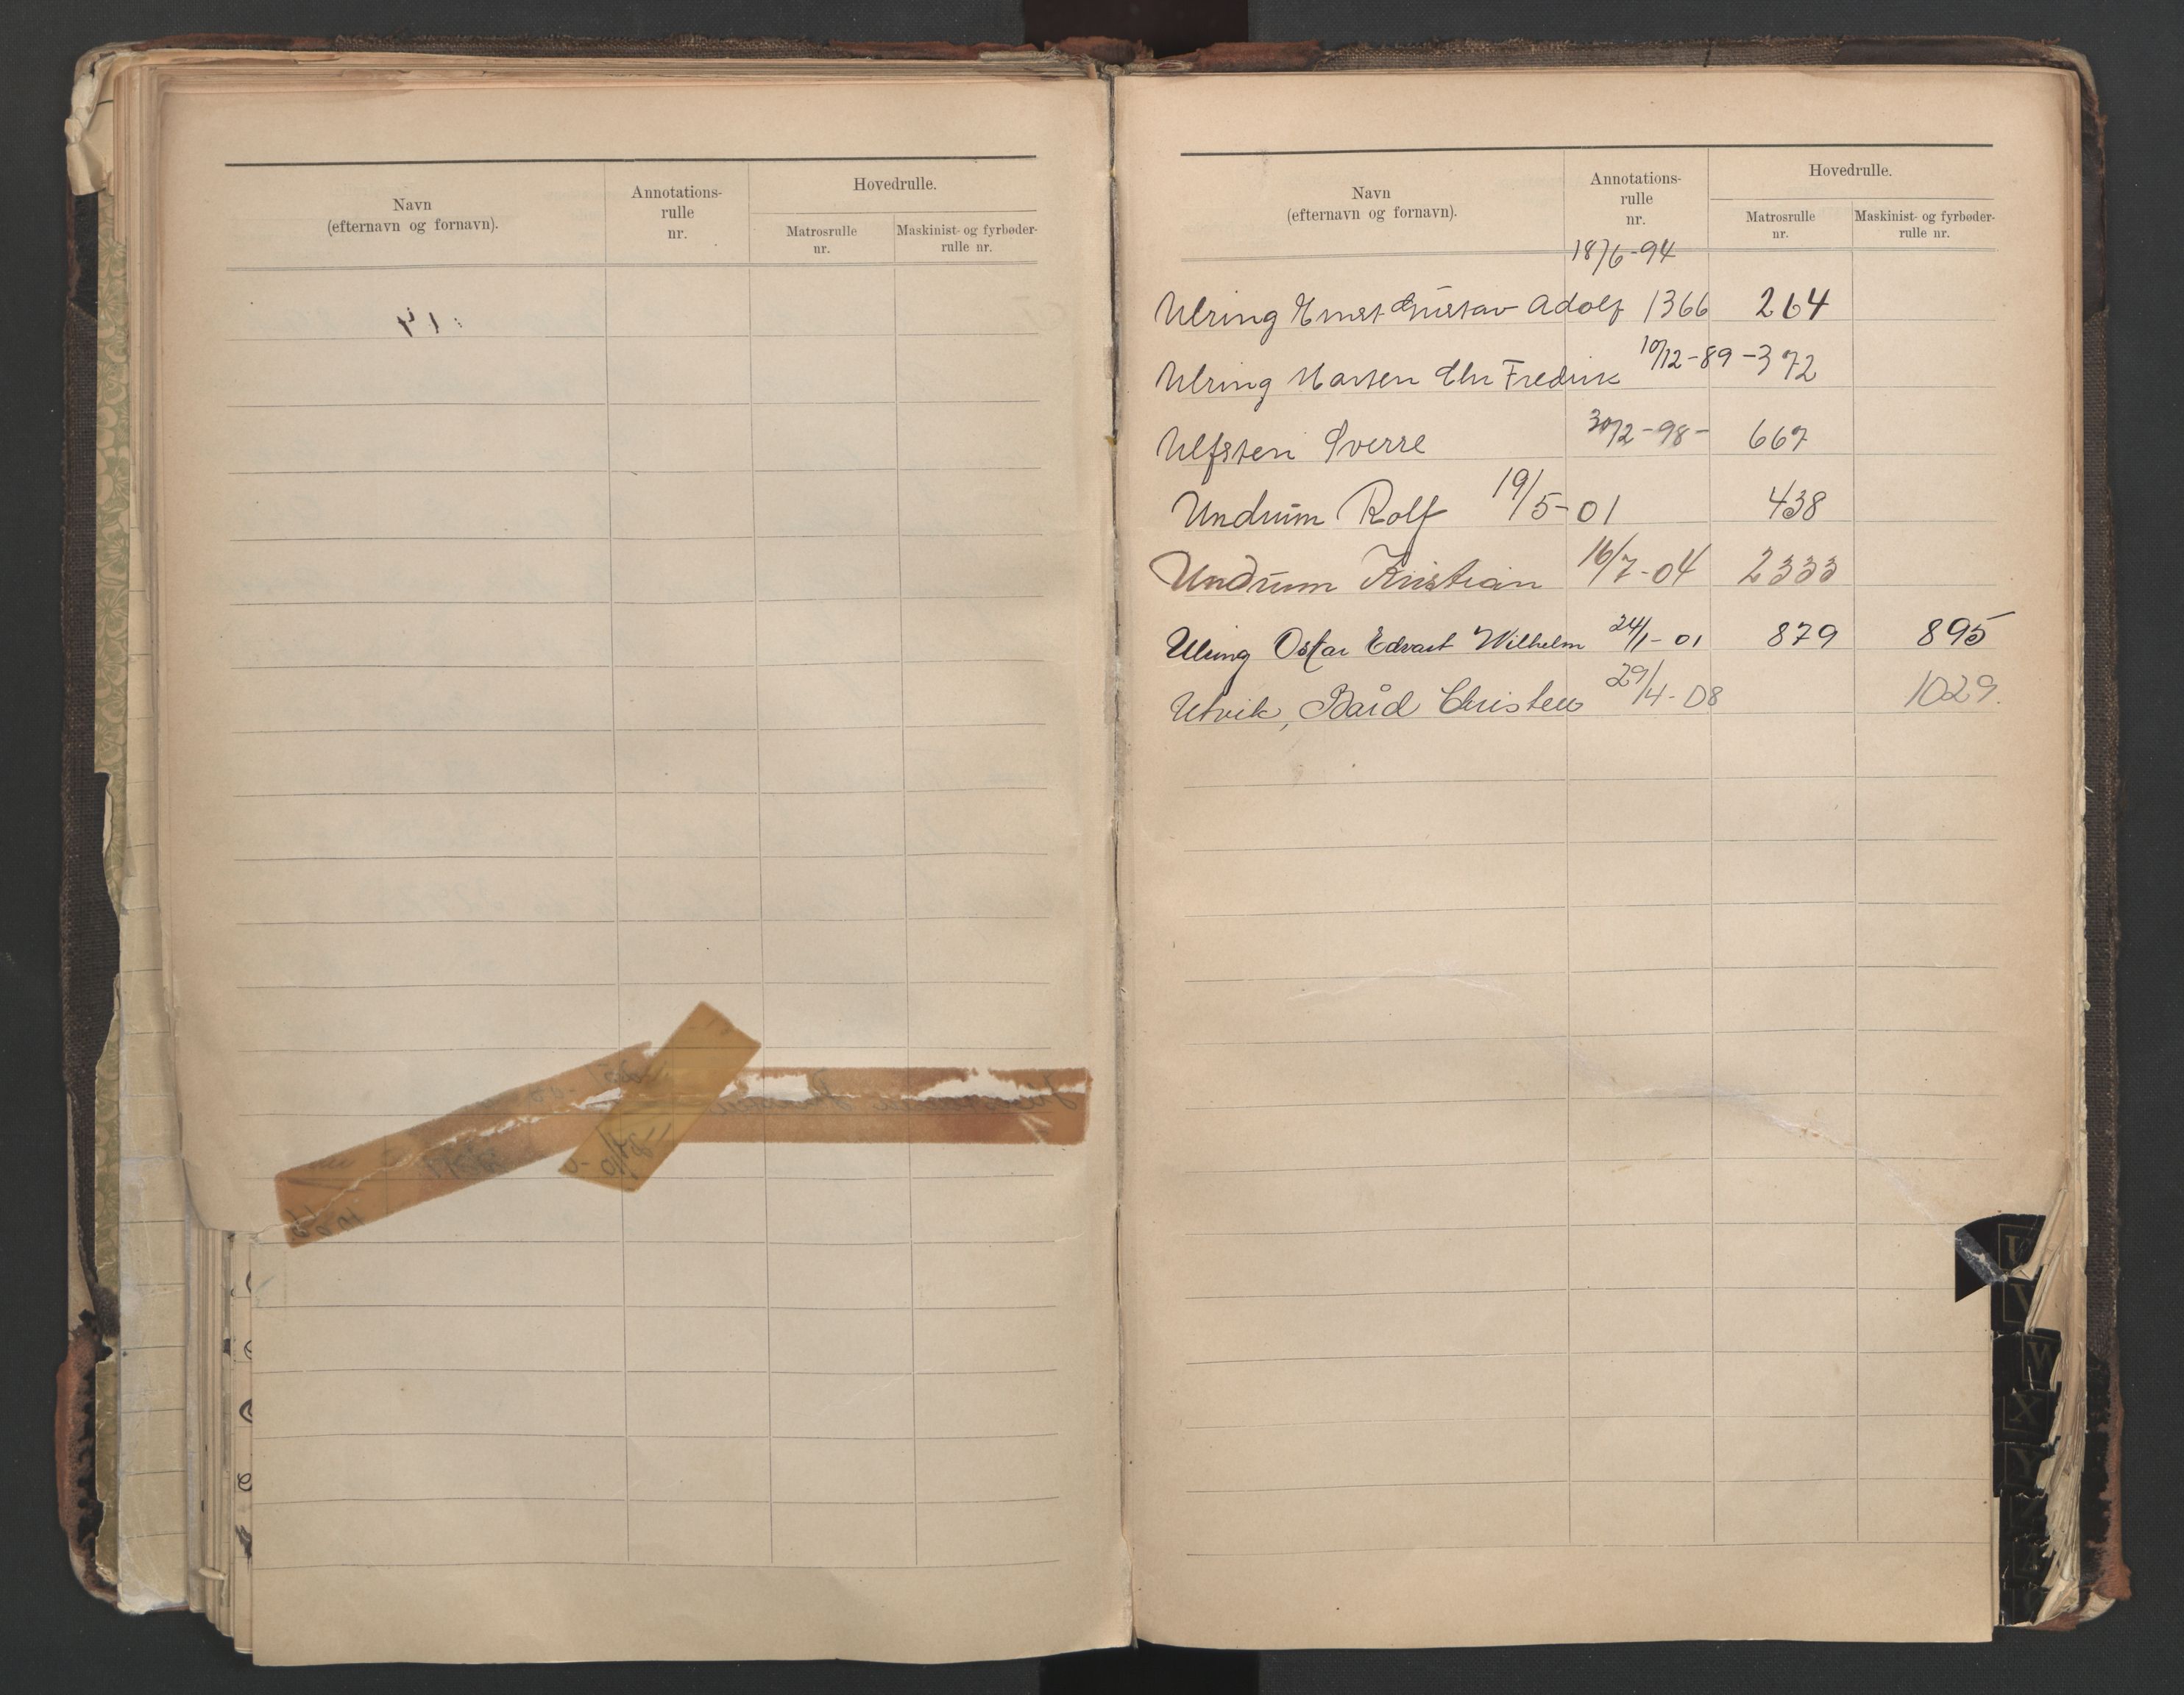 Navn
(efternavn og fornavn).
Annotations-
rulle
nr.
Hovedrulle.
Matrosrulle
nr.
Maskinist- og fyrbøder-
rulle nr.
Navn
(efternavn og fornavn).
Annotations-
rulle
nr.
Hovedrulle.
Matrosrulle
nr.
Maskinist- og fyrbøder-
rulle nr.
Ulring Ernst Gustav Adolf 1366 264
Ulring Chr Fredrik 10/12-89 - 372
Ulfsten Sverre 30/2-98- 667
Undrum Rolf 19/5-01 438
Undrum Kristian 16/7-04 2333
Ulring Oskar Edvart Wilhelm 24/1-01 879 895
Utvik, Bård Christen 29/4-08 1029.
U
V
W
X
Y
Z